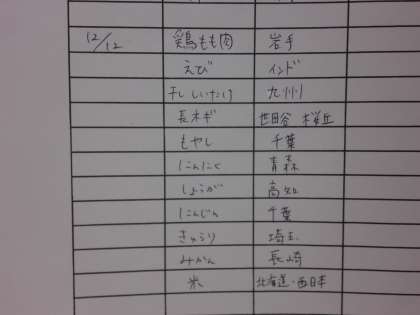 12/12 鶏もも肉 岩手
えび インド
干ししいたけ 九州
長ネギ 世田谷 桜丘
もやし 千葉
にんにく 青森
しょうが 高知
にんじん 千葉
きゅうり 埼玉
みかん 長崎
米 北海道・西日本